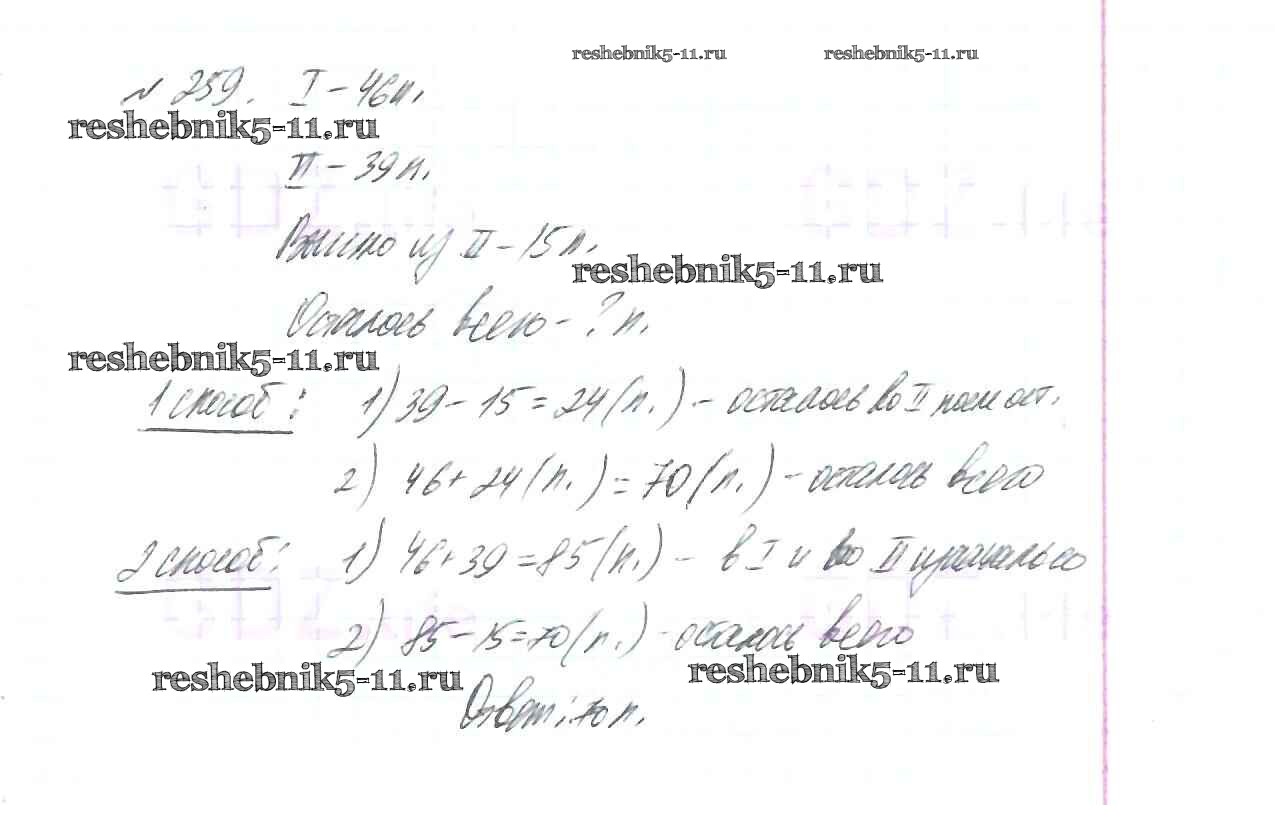 reshebnik5-11.ru reshebnik5-11.ru
№ 259. I – 46 п.
reshebnik5-11.ru
II – 39 п.
Вышло из II – 15 п.
reshebnik5-11.ru
Осталось всего – ? п.
reshebnik5-11.ru
1 способ: 1) 39 – 15 = 24 (п.) – осталось во II после ост.
2) 46 + 24 (п.) = 70 (п.) – осталось всего
2 способ: 1) 46 + 39 = 85 (п.) – в I и во II изначально
2) 85 – 15 = 70 (п.) – осталось всего
reshebnik5-11.ru reshebnik5-11.ru
Ответ: 70 п.